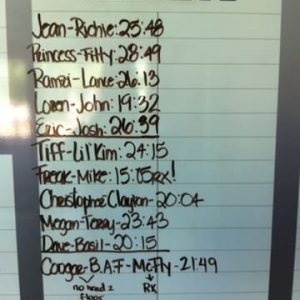 Jean-Richie: 25:48
Princess-Fitty: 28:49
Ramzi-Lance: 26:13
Loren-John: 19:32
Eric-Josh: 26:39
Tiff-Lil'Kim: 24:15
Freak-Mike: 15:05RX!
Christophe Clayton-20:04
Megan-Terry-23:43
Dave-Basil-20:15
Coogar-B.A.F-McFly-21:49
no hand 2 RX
floor